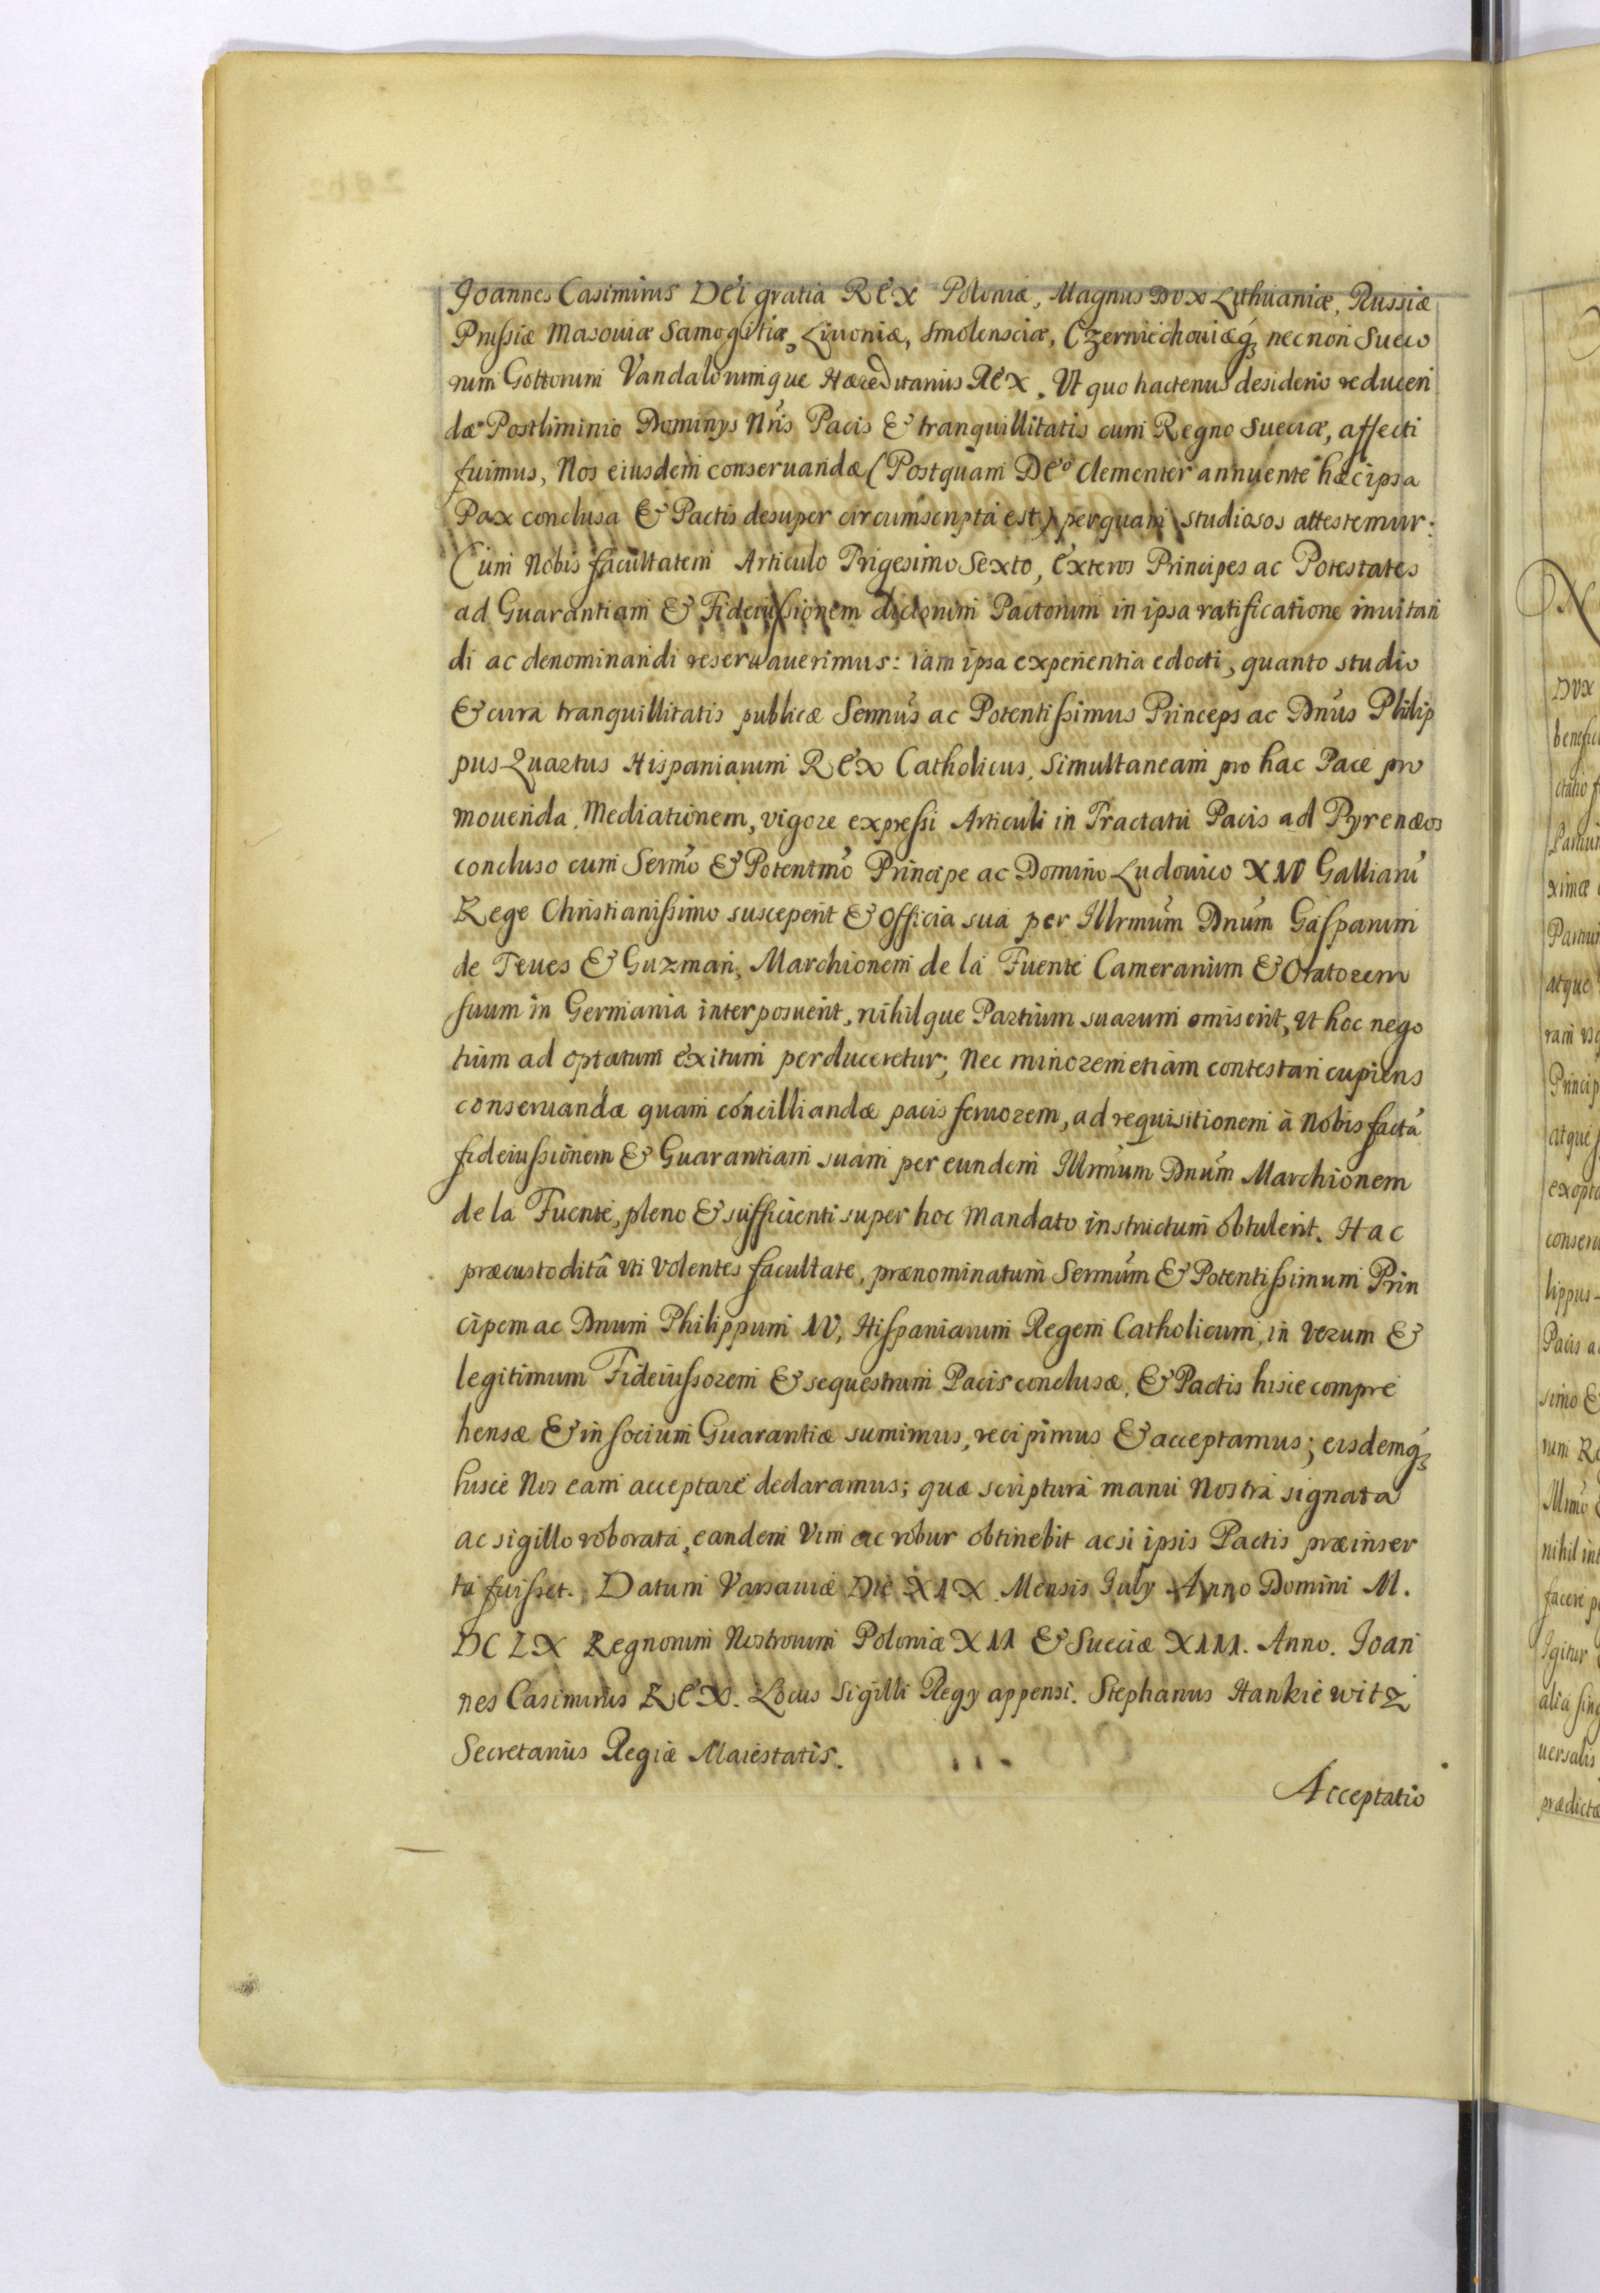 Joannes Casimirus Dei gratia Rex Poloniæ, Magnus Dux Lithuaniæ, Russiæ
Prussiæ Masoviæ Samogitiæ, Livoniæ, Smolensciæ, Czerniechoviæq́; necnon Sueco
rum Gottorum Vandalorumque Hæreditarius Rex. Ut quo hactenus desiderio reducen
dæ Postliminio Dominys Nr̃is Pacis & tranquillitatis cum Regno Sueciæ, affecti
fuimus, Nos eiusdem conservandæ (Postquam Deo clementer annuente hæc ipsa
Pax conclusa & Pactis desuper circumscripta est) perquam studiosos attestemur:
Cum Nobis facultatem Articulo Trigesimo Sexto, Exteros Principes ac Potestates
ad Guarantiam & Fideiussionem dictorum Pactorum in ipsa ratificatione invitan
di ac denominandi reservaverimus: iam ipsa experientia edocti, quanto studio
& cura tranquillitatis publicæ Sermũs ac Potentissimus Princeps ac Dnũs Philip
pus Quartus Hispaniarum Rex Catholicus, simultaneam pro hac Pace pro
movenda Mediationem, vigore expressi Articuli in Tractatu Pacis ad Pyrenæos
concluso cum Sermõ & Potentmõ Principe ac Domino Ludovico XIV Galliarũ
Rege Christianissimo susceperit & Officia sua per Illrmũm Dnũm Gasparum
de Teves & Guzman, Marchionem de la Fuente Camerarium & Oratorem
suum in Germania interposuerit, nihilque Partium suarum omiserit, ut hoc nego
tium ad optatum exitum perduceretur; Nec minorem etiam contestari cupiens
conservandæ quam concilliandæ pacis fervorem, ad requisitionem à Nobis factã
fideiussionem & Guarantiam suam per eundem Illmũm Dnũm Marchionem
de la Fuente, pleno & sufficienti super hoc Mandato instructum obtulerit. Hac
præcustoditâ uti volentes facultate, prænominatum Sermũm & Potentissimum Prin
cipem ac Dnum Philippum IV, Hispaniarum Regem Catholicum, in verum &
legitimum Fideiussorem & sequestrum Pacis conclusæ, & Pactis hisce compre
hensæ & in socium Guarantiæ sumimus, recipimus & acceptamus; eisdemq́;
hisce Nos eam acceptare declaramus; quæ scriptura manu Nostra signata
ac sigillo roborata, eandem Vim ac robur obtinebit acsi ipsis Pactis præinser
ta fuisset. Datum Varsaviæ Die XIX Mensis July Anno Domini M.
DCLX Regnorum Nostrorum Poloniæ XII & Sueciæ XIII. Anno. Joan
nes Casimirus Rex. Locus Sigilli Regy appensi. Stephanus Hankiewitz
Secretarius Regiæ Maiestatis.
Acceptatio